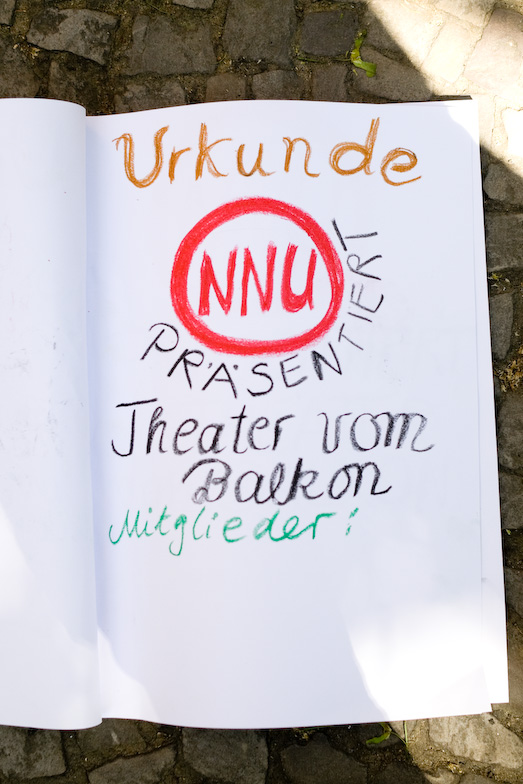 Urkunde
NNU
PRÄSENTIERT
Theater vom
Balkon
Mitglieder: